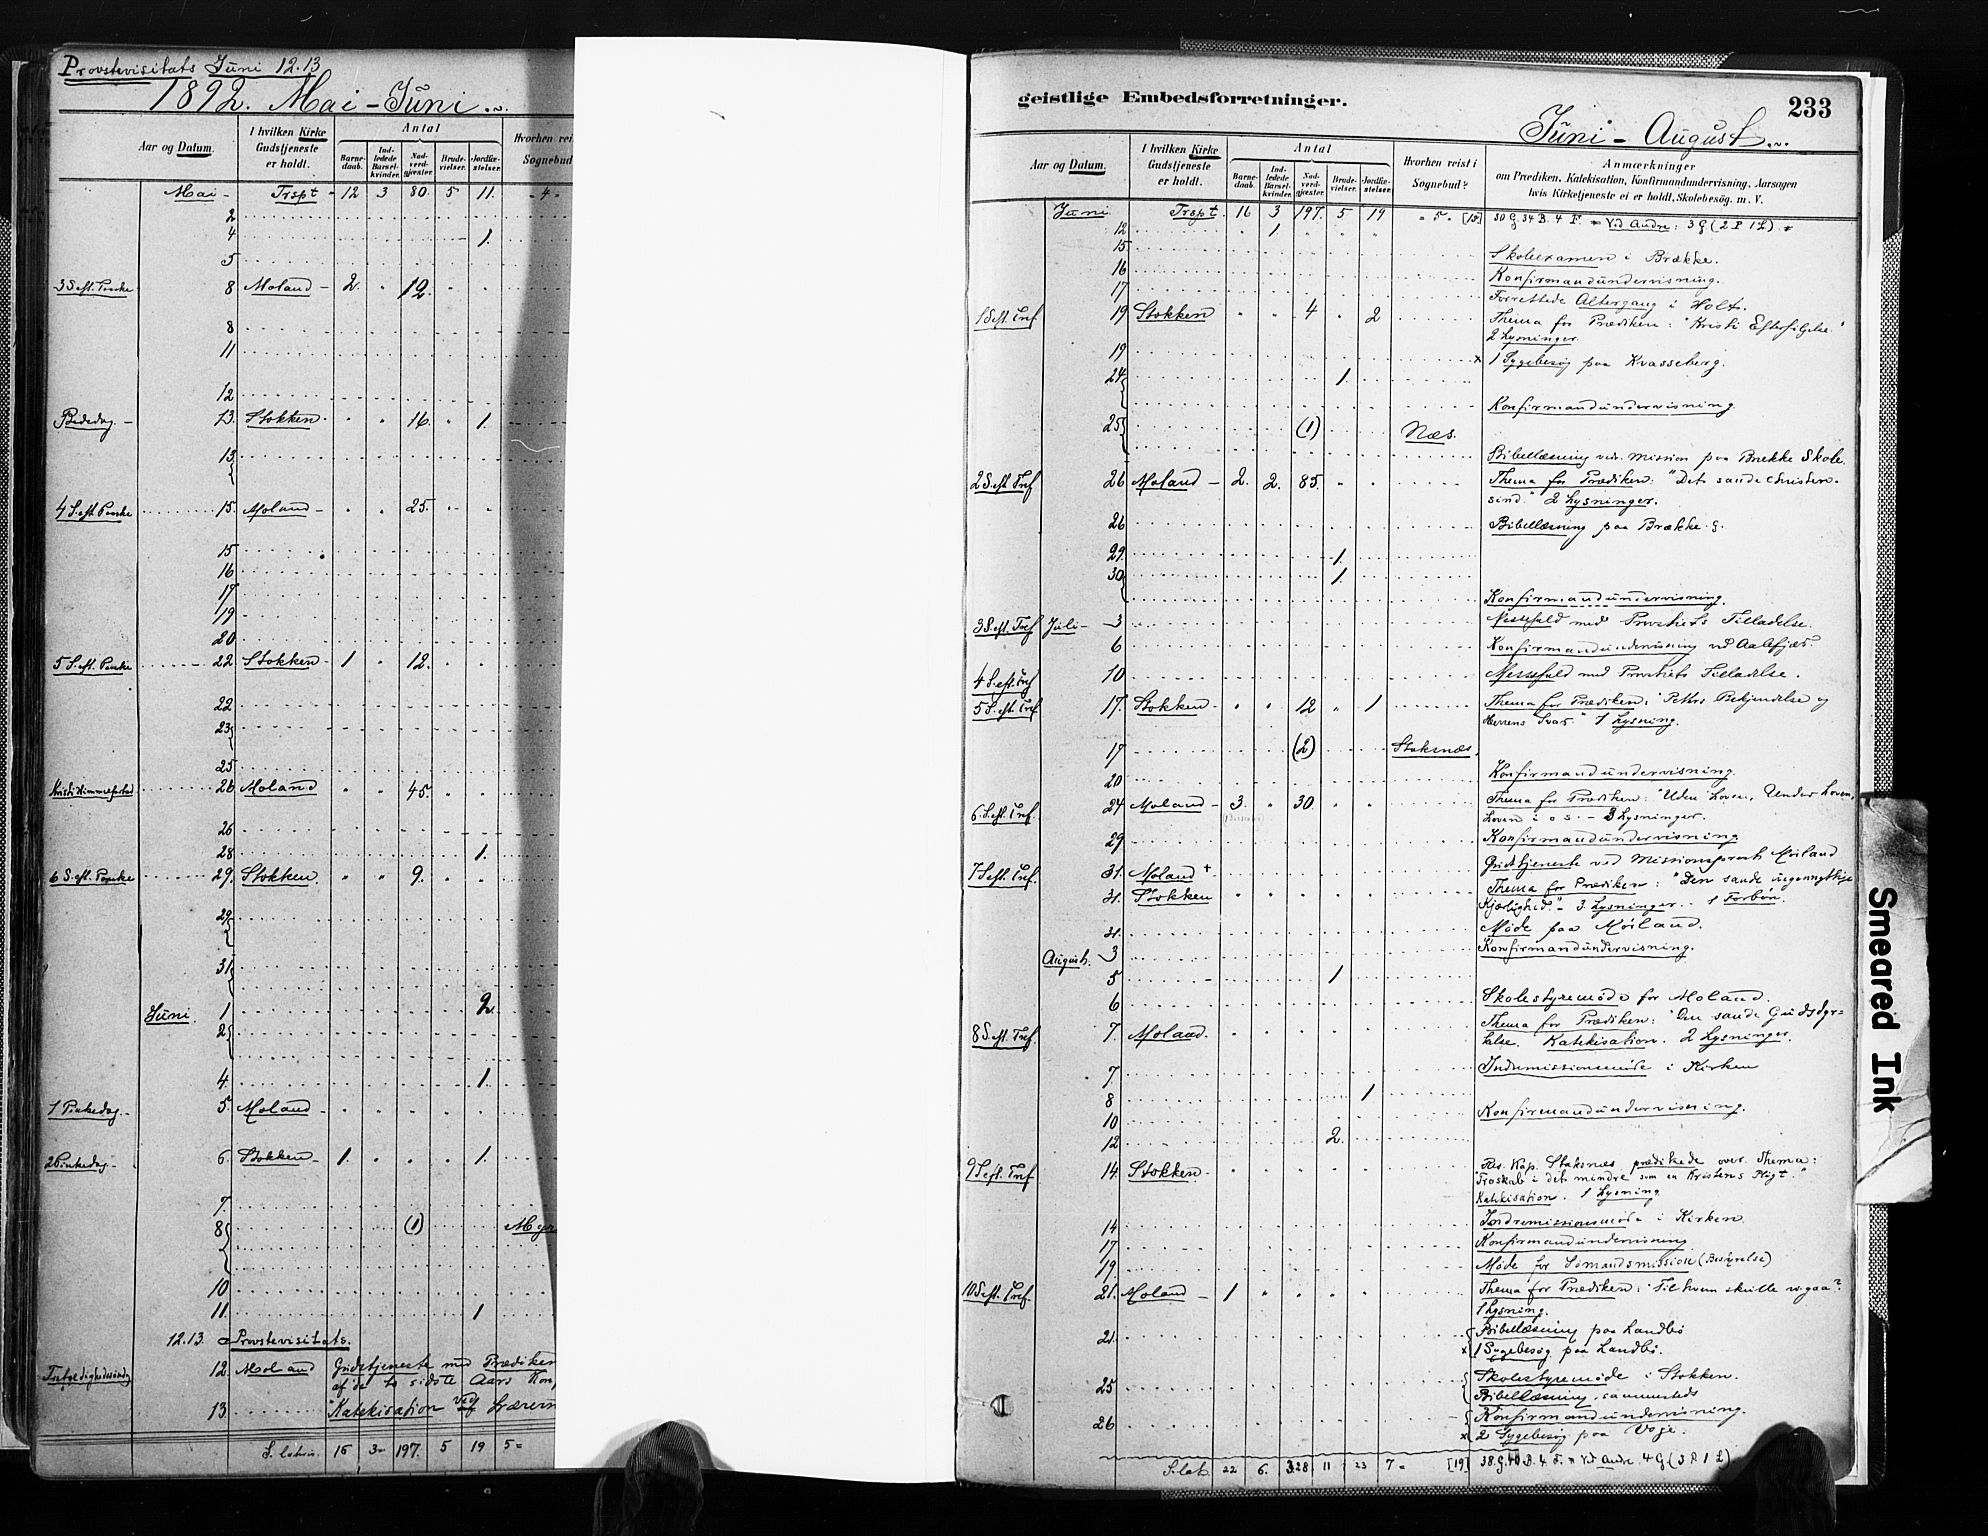 Provstevisitats Juni 12.13
1892. Mai - Juni
Aar og Datum.
I hvilken Kirke Gudstjeneste er holdt.
Antal
Barne-daab.
Ind-ledede Barsel-kvinder.
Nad-verd-gjester.
Brude-vielser.
Jordfæ-stelser.
Hvorhen rei
Sognebud
Mai - Trspt - 12 3 80. 5 11. "4"
2
4 1.
5
3 S eft. Paaske 8 Moland - 2. " 12.
8
11
12
Bededag - 13. Stokken " " 16. " 1.
13.
4 S. eft. Paaske 15. Moland - " " 25.
15
16
17
19
20
5 S. eft. Paaske 22. Stokken - 1 " 12.
22
23
25
Kristi Himmelfartsd 26 Moland " " 45.
26
28 1.
6 S. eft. Paaske 29. Stokken. " " 9.
29
31
Juni. 1 2
2
4. 1.
1 Pinkedag - 5. Moland -
2 Pinkedag - 6. Stokken - 1. " " " 1.
7.
8 (1)
10
11. 1
12.13. Provstevisitats.
Trefoldighedssøndag 12. Moland Gudstjeneste med Prædiken
af de to sidste Aars Kon
13. Katekisation
S. latus. 16 3 197. 5 19 5=
geistlige Embedsforretninger.
233
Juni - August
Aar og Datum.
I hvilken Kirke Gudstjeneste er holdt.
Antal
Barne-daab.
Ind-ledede Barsel-kvinder.
Nad-verd-gjester.
Brude-vielser.
Jordfæ-stelser.
Hvorhen reist i Sognebud?
Anmærkninger
om Prædiken, Katekisation, Konfirmandundervisning, Aarsagen
hvis Kirketjeneste ei er holdt, Skolebesøg. m. V.
Juni Trspt. 16 3 197. 5 19 "5" 30 G. 34 B. 4 F. = Ved Andre: 3 G (2 P 1 L).
12 1
15. Skoleexamen i Brække.
16 Konfirmandundervisning.
17 Forrettede Altergang i Holt.
1 S eft. Tref 19 Stokken " " 4 " 2 Thema for Prædiken: "Kristi Efterfølgelse."
2 Lysninger.
19 x 1 Sygebesøg paa Kvasseberg.
24 1.
Konfirmandundervisning.
25 (1) Næs.
Bibellæsning paa Brække Skole.
2 S. eft Tref 26 Moland - 2. 2. 85. Thema for Prædiken: "Det sande Christen-
sind." 2 Lysninger.
26 Bibellæsning paa Brække
29. 1.
30 1.
Konfirmandundervisning.
3 S. eft. Tref Juli - 3 Messefald med Provstiets Tilladelse.
6 Konfirmandundervisning
4 S. eft Tref 10 Messefald med Provstiets Tilladelse.
5 S. eft. Tref 17. Stokken - " " 12 " 1 Thema for Prædiken: Peters Bekjendelse og
Herrens Svar." 1 Lysning.
17 (2) Staksnæs.
20 Konfirmandundervisning.
6. S. eft. Tref. 24 Moland - 3. " 30. Thema for Prædiken: "Uden Loven, Under Loven,
Loven i os. - 3 Lysninger.
29 Konfirmandundervisning
7 S. eft. Tref. 31. Moland + Gudstjeneste ved Missionsprest Møiland
31. Stokken Thema for Prædiken: "Den sande uegennyttige
Kjærlighed." - 3 Lysninger. - 1 Forbøn.
31. Møde paa Møiland.
August. 3 Konfirmandundervisning.
5 1
6 Skolestyremøde for Moland.
8 S. eft. Tref. 7. Moland. Thema for Prædiken: "Den sande Gudsdyr-
kelse. Katekisation. 2 Lysninger.
7. Indremissionsmøde i Kirken
8 1
10 Konfirmandundervisning.
12 2.
9 S. eft. Tref 14. Stokken - Res. Kap. Staksnæs prædikede over Thema:
"Troskab i det mindre som en Kristens Pligt."
Katekisation. 1 Lysning.
14 Indremissionsmøde i Kirken.
17 Konfirmandundervisning
19 Møde for Sømandsmission (Bestyrelse)
10 S eft. Tref. 21. Moland - 1 Thema for Prædiken: Til hvem skulle vi gaa?
1 Lysning.
21. Bibellæsning paa Landbø
x 1 Sygebesøg paa Landbø.
25 Skolestyremøde i Stokken.
Bibellæsning sammesteds
26 Konfirmandundervisning.
x 2 Sygebesøg paa Voje.
S. lat. 22 6. 328 11 23 7 = [19] 38 G. 40 B. 4. F. = Ved Andre. 4 G (3 P. 1 L)
Smeared Ink